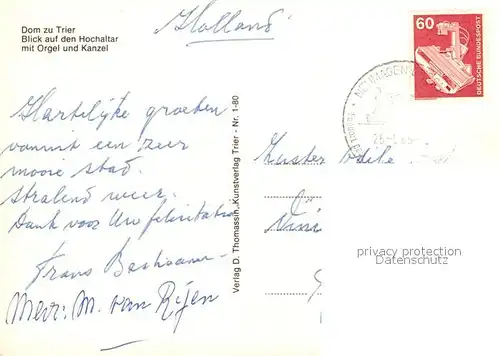 Dom zu Trier
Blick auf den Hochaltar
mit Orgel und Kanzel
Holland
60
DEUTSCHE BUNDESPOST
Hartelijke groeten
vanuit een zeer
mooie stad.
Stralend weer.
Dank voor Uw felicitatie
Frans
Mevr: M. van Rijen
Verlag D. Thomassin, Kunstverlag Trier - Nr. 1-80
Zuster
privacy protection
Datenschutz